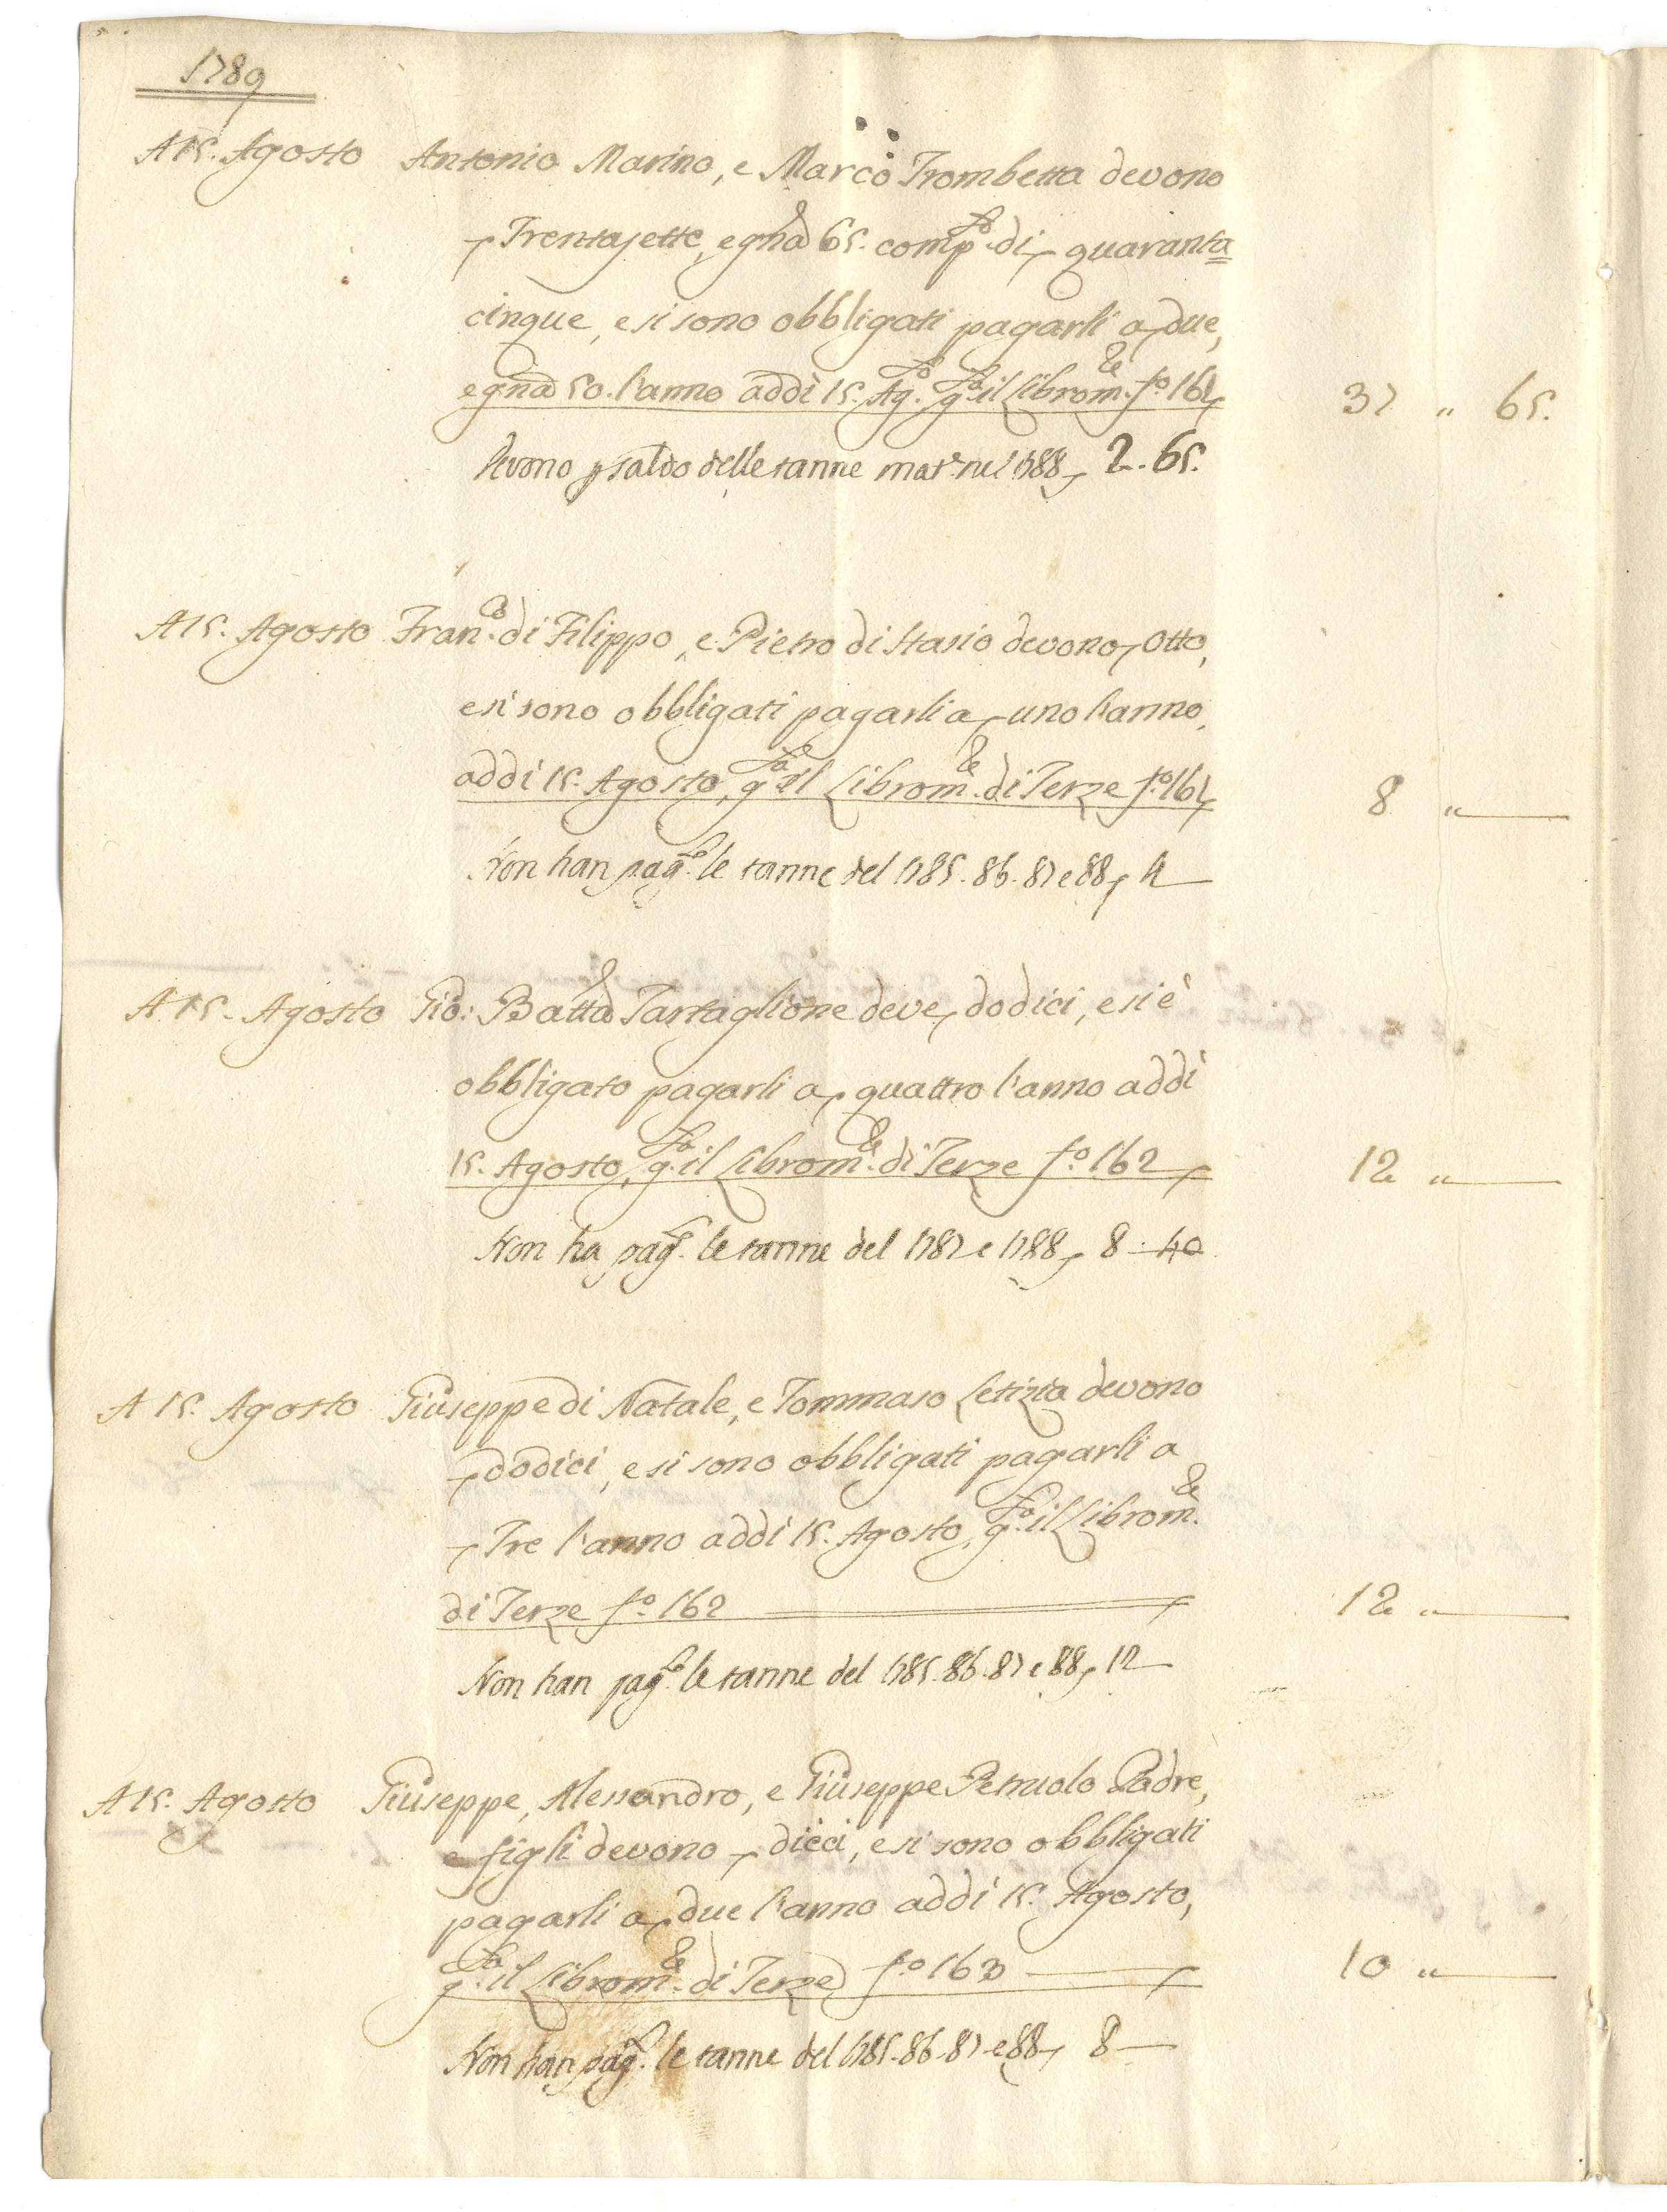 1789
A 15. Agosto Antonio Marino, e Marco Trombetta devono
Trentasette, e gna 65. compto di quaranta=
cinque, e si sono obbligati pagarli a due,
e gna 50. l'anno addì 15. Agto. gta il Librom.le fo. 161 37 " 65.
Devono p saldo delle tanne mate nel 1788 2. 65.
A 15. Agosto Fran.co di Filippo, e Pietro di Stasio devono Otto,
e si sono obbligati pagarli a uno l'anno,
addì 15. Agosto, gta il Librom.le di Terze fo. 161 8 "
Non han pagto. le tanne del 1785. 86. 87 e 88 4
A 15. Agosto Gio: Batta Tartaglione deve dodici, e si è
obbligato pagarli a quattro l'anno addì
15. Agosto, gta il Librom.le di Terze fo. 162 12 "
Non ha pagto. le tanne del 1787 e 1788 8
A 15. Agosto Giuseppe di Natale, e Tommaso Letizia devono
dodici, e si sono obbligati pagarli a
Tre l'anno addì 15. Agosto, gta il Librom.le
di Terze fo. 162 12 "
Non han pagto. le tanne del 1785. 86. 87 e 88 12
A 15. Agosto Giuseppe, Alessandro, e Giuseppe Petruolo Padre,
e figli devono dieci, e si sono obbligati
pagarli a due l'anno addì 15. Agosto,
gta il Librom.le di Terze fo. 163 10 "
Non han pagto. le tanne del 1785. 86. 87 e 88 8